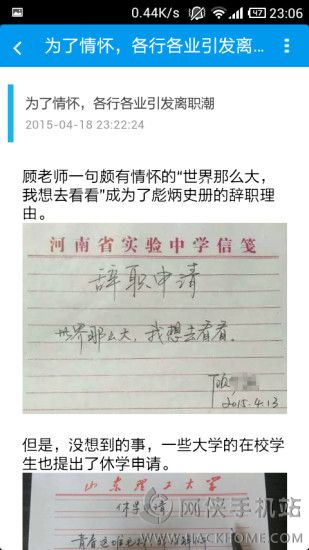 0.44K/s 47 23:06
为了情怀，各行各业引发离...
为了情怀，各行各业引发离职潮
2015-04-18 23:22:24
顾老师一句颇有情怀的“世界那么大，
我想去看看”成为了彪炳史册的辞职理
由。
河南省实验中学信笺
辞职申请
世界那么大，我想去看看。
2015.4.13
但是，没想到的事，一些大学的在校学
生也提出了休学申请。
山东理工大学
休学申请
网侠手机站
WWW.HACKHOME.COM